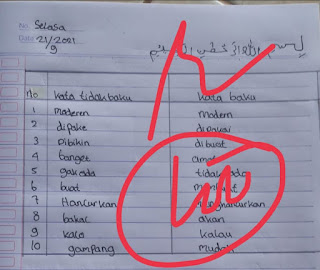 No. Selasa
Date 21/2021
9
بسم الله الرحمن الرحيم
No kata tidak baku kata baku
1 moderen modern
2 dipake dipakai
3 Dibikin dibuat
4 banget amat
5 gak ada tidak ada
6 buat membuat
7 Hancurkan menghancurkan
8 bakal akan
9 kalo kalau
10 gampang mudah